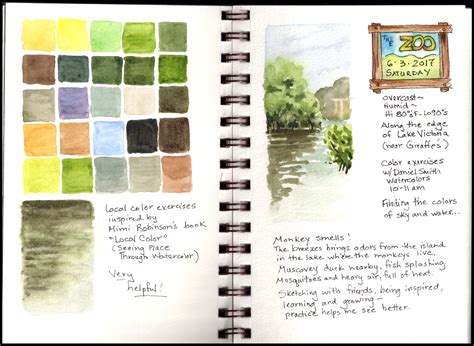 Local color exercises
inspired by
Mimi Robinson's book
"Local Color"
(Seeing Place
Through Watercolor)
Very
helpful!
THE ZOO
6·3·2017
SATURDAY
overcast~
Humid~
Hi 80°sF-Lo90's
Along the edge
of Lake Victoria
(near Giraffes)
Color exercises
w/Daniel Smith
Watercolors
10-11am
Finding the colors
of sky and water...
Monkey smells!
The breezes brings odors from the island
in the lake where the monkeys live.
Muscovey duck nearby, fish splashing.
Mosquitoes and heavy air, full of heat.
Sketching with friends, being inspired,
learning and growing~
practice helps me see better.